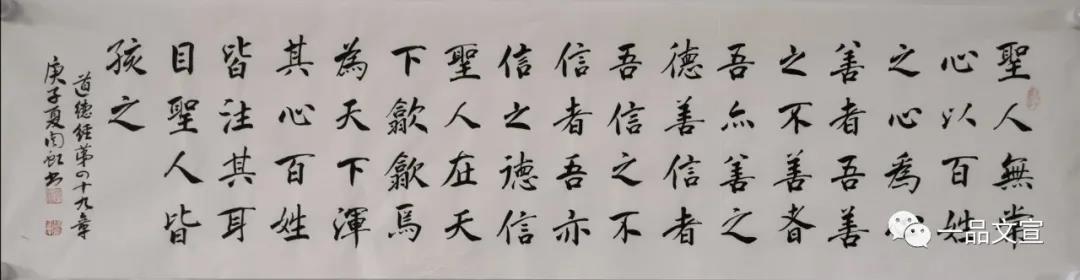 聖人無常
心以百姓
之心為心
善者吾善
之不善者
吾亦善之
德善信者
吾信之不
信者吾亦
信之德信
聖人在天
下歙歙焉
為天下渾
其心百姓
皆注其耳
目聖人皆
孩之
道德經第四十九章
庚子夏书
一品文宣